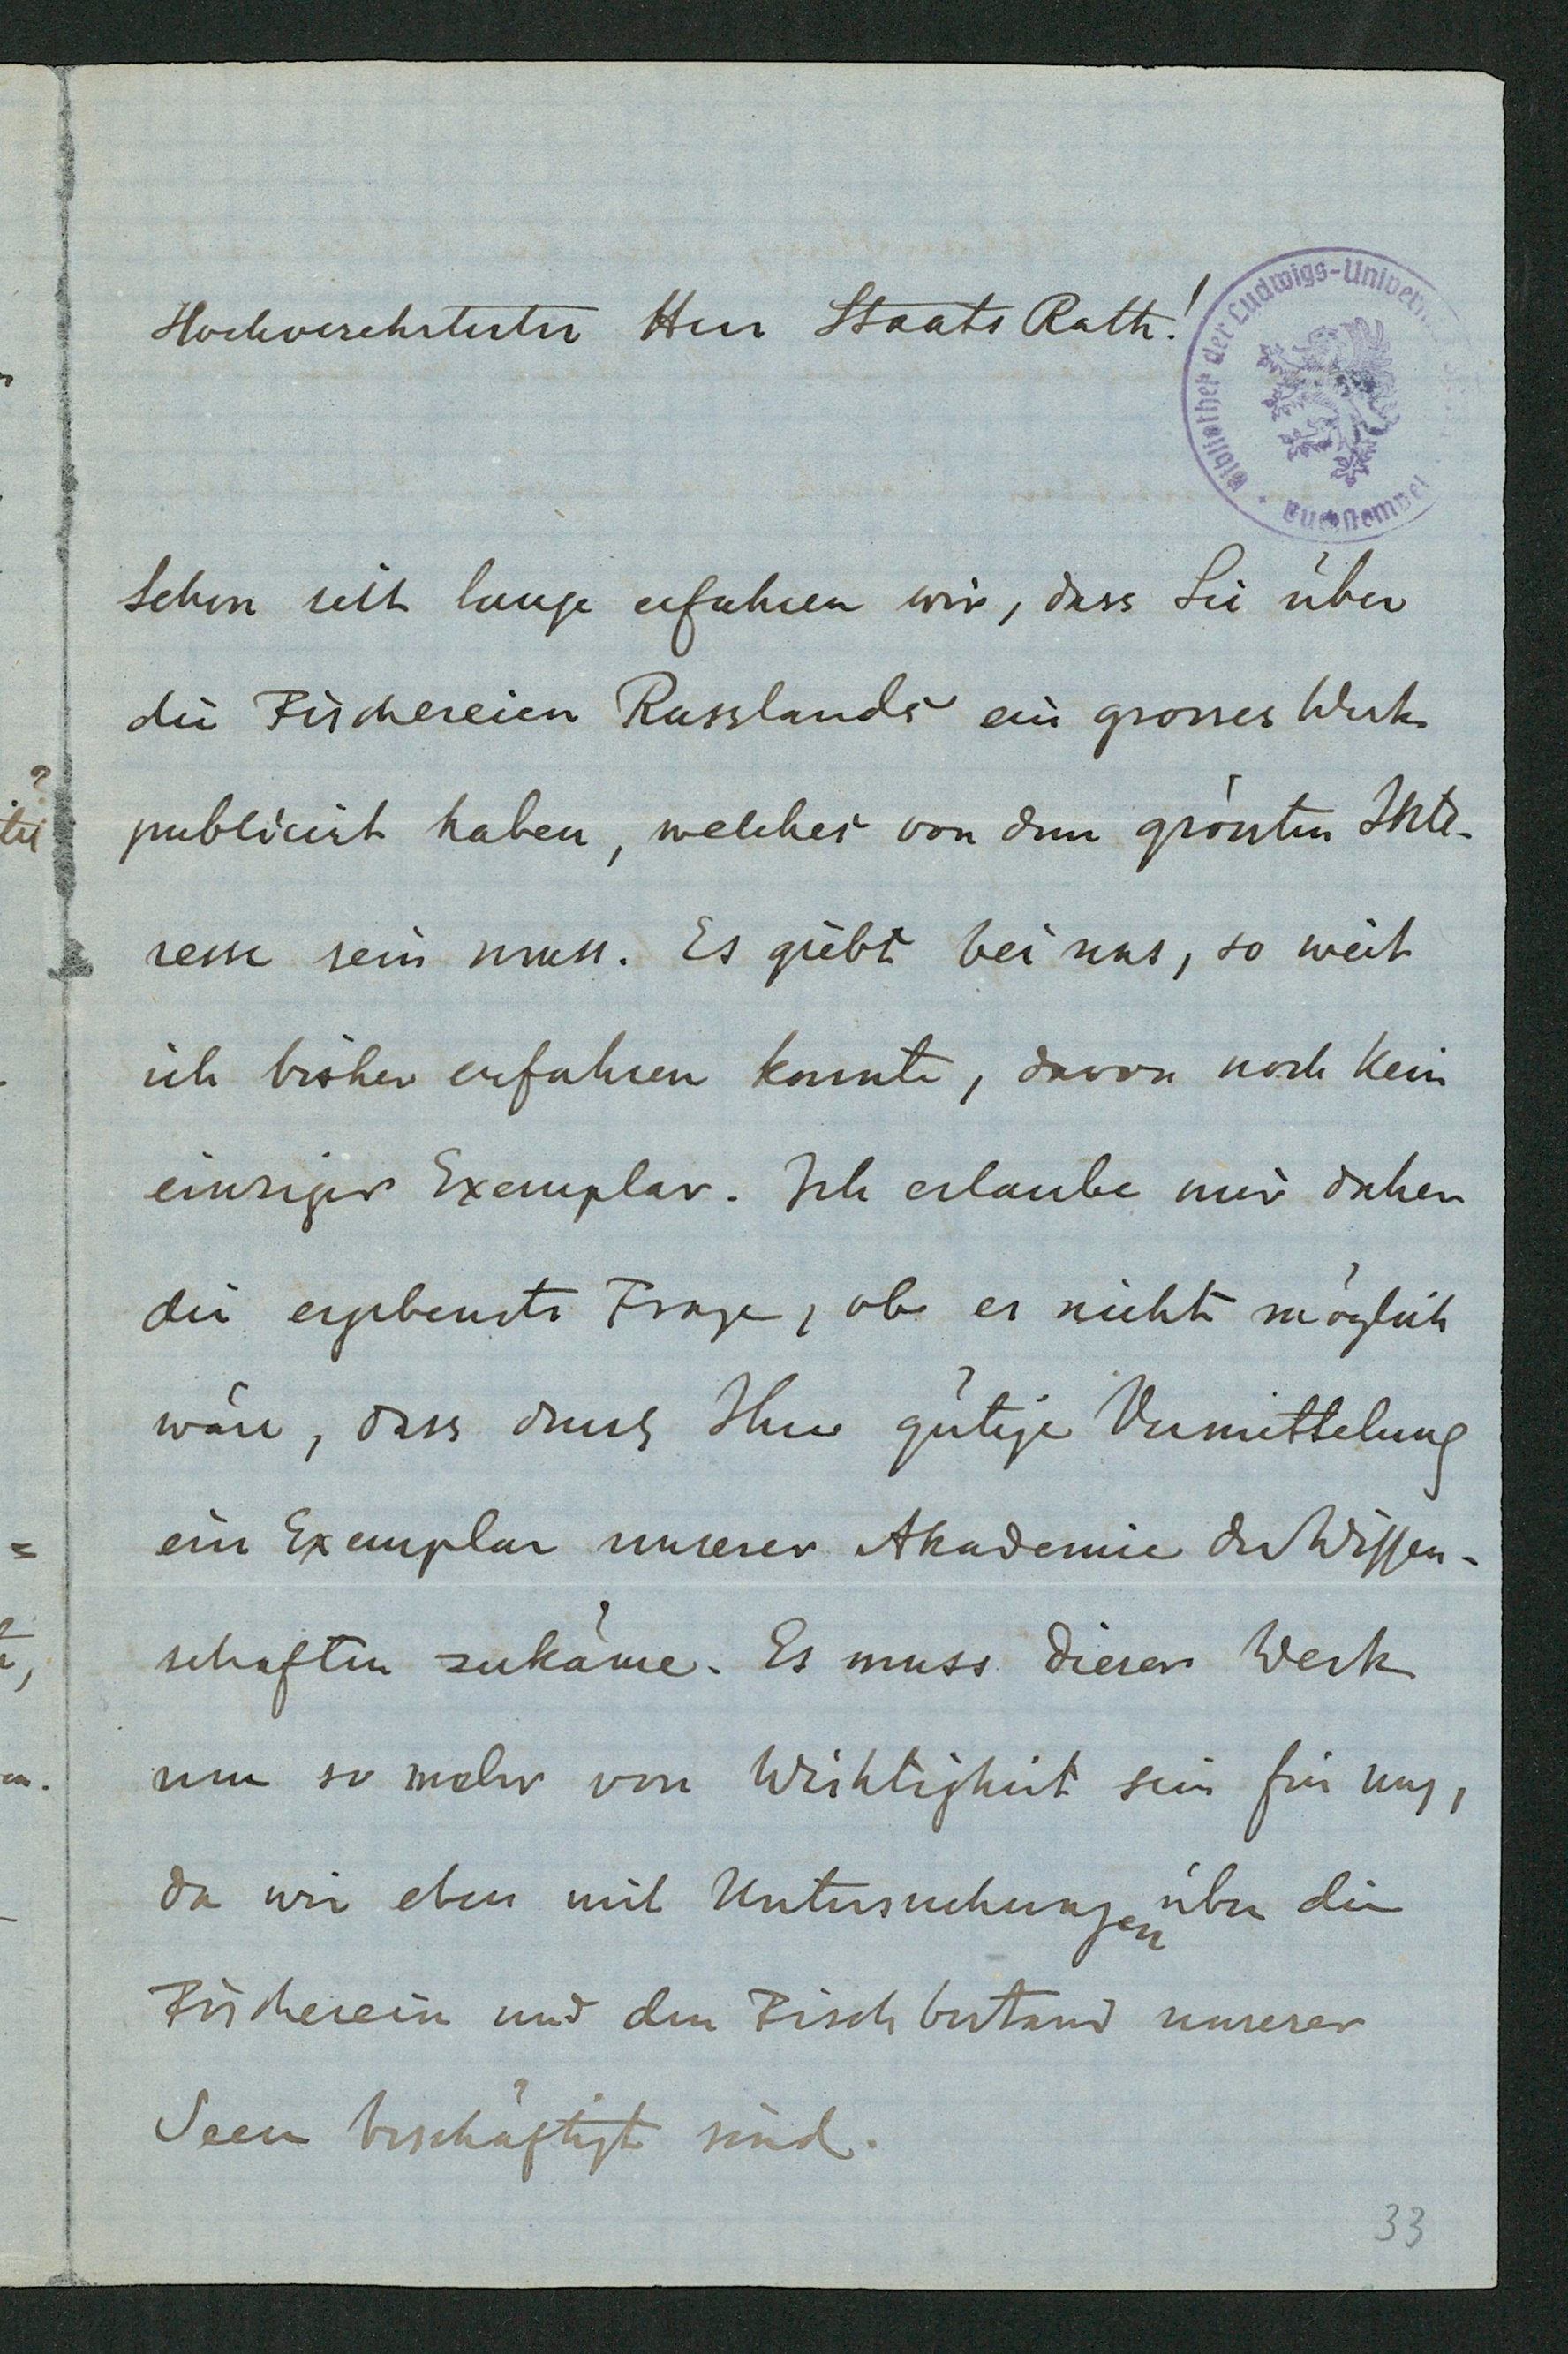 Hochverehrtester Herr Staats Rath!
Bibliothek der Ludwigs-Univer
Buchstempel
Schon seit lange erfahren wir, dass Sie über
die Fischereien Russlands ein grosses Werk
publicirt haben, welches von dem grössten Inte-
resse sein muss. Es giebt bei uns, so weit
ich bisher erfahren konnte, davon noch kein
einziges Exemplar. Ich erlaube mir daher
die ergebenste Frage, ob es nicht möglich
wäre, dass durch Ihre gütige Vermittelung
ein Exemplar unserer Akademie der Wissen-
schaften zukäme. Es muss dieses Werk
um so mehr von Wichtigkeit sein für uns,
da wir eben mit Untersuchungen über die
Fischereien und den Fischbestand unserer
Seen beschäftigt sind.
33